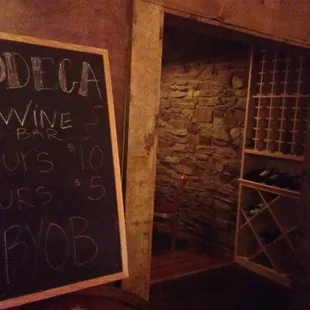 ODECA
WINE $
BAR
OURS $10
OURS $5
BYOB